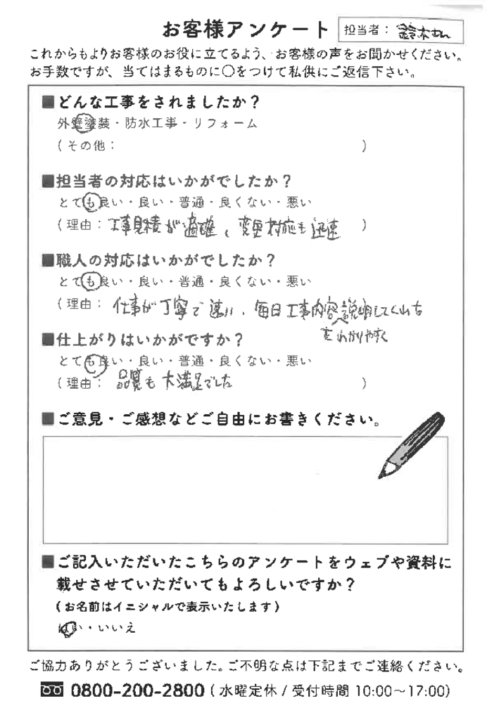 お客様アンケート 担当者：鈴木さん
これからもよりお客様のお役に立てるよう、お客様の声をお聞かせください。
お手数ですが、当てはまるものに○をつけて私供にご返信下さい。
■どんな工事をされましたか？
外壁塗装・防水工事・リフォーム
（その他： ）
■担当者の対応はいかがでしたか？
とても良い・良い・普通・良くない・悪い
（理由：工事見積が適確、変更対応も迅速 ）
■職人の対応はいかがでしたか？
とても良い・良い・普通・良くない・悪い
（理由：仕事が丁寧で速い、毎日工事内容説明してくれた
をわかりやすく
■仕上がりはいかがですか？
とても良い・良い・普通・良くない・悪い
（理由：品質も大満足でした ）
■ご意見・ご感想などご自由にお書きください。
■ご記入いただいたこちらのアンケートをウェブや資料に
載せさせていただいてもよろしいですか？
（お名前はイニシャルで表示いたします）
はい・いいえ
ご協力ありがとうございました。ご不明な点は下記までご連絡ください。
0800-200-2800（水曜定休/受付時間 10:00～17:00）